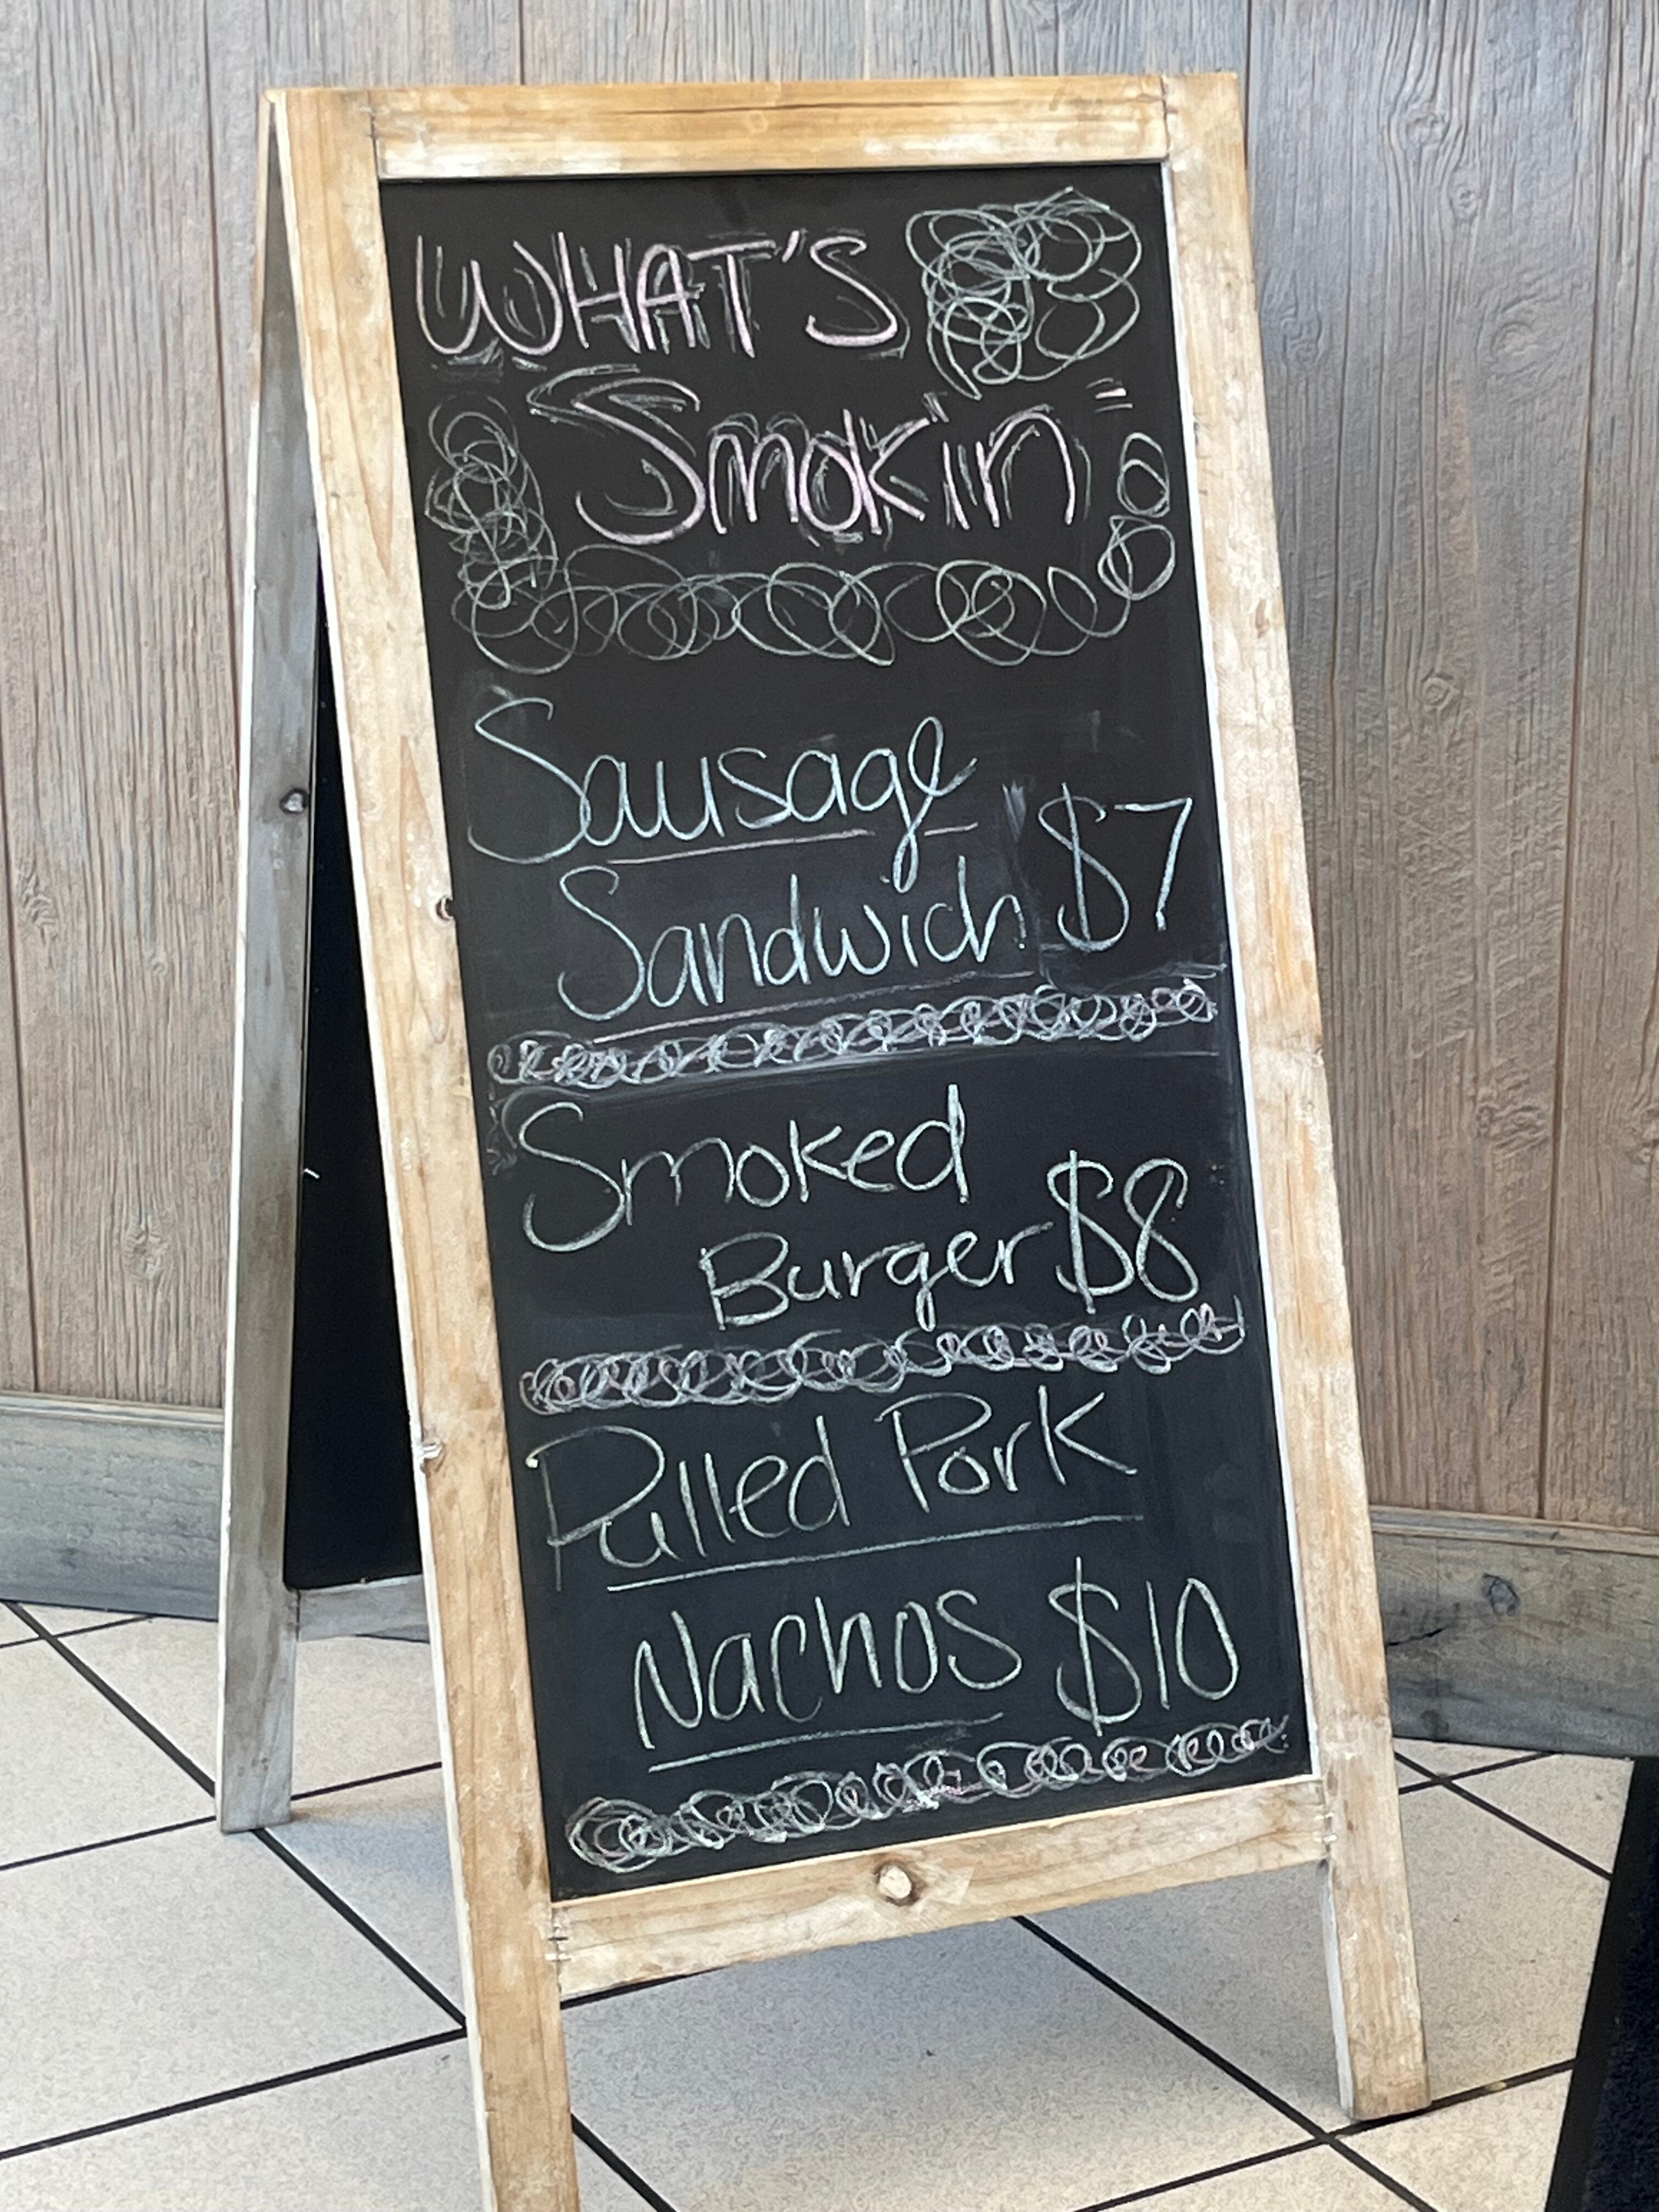 WHAT'S
"Smok'in"
Sausage
Sandwich $7
Smoked
Burger $8
Pulled Pork
Nachos $10